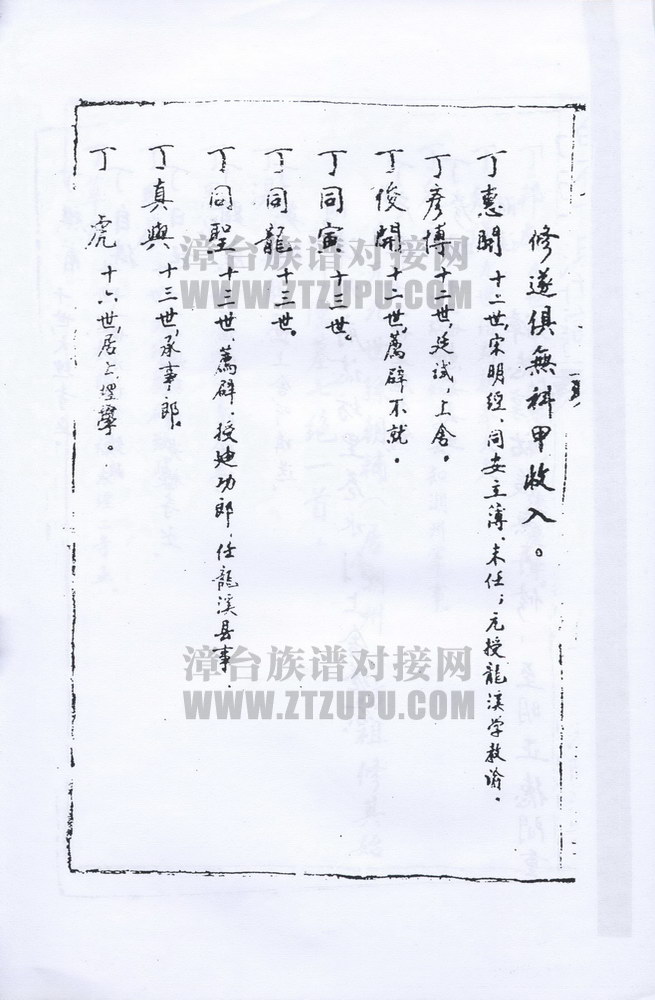 修遂俱無科甲收入。
丁惠開 十二世,宋明經、同安主簿、未任；元授龍溪学教諭。
丁彦摶 十二世廷試，上舍。
丁俊開 十二世,薦辟不就。
丁同寅 十三世。
丁同龍 十三世。
丁同聖 十三世、薦辟、授迪功郎，任龍溪县事.
丁真與 十三世,承事郎。
丁 虎 十六世,居上埋學。
漳台族谱对接网
WWW.ZTZUPU.COM
漳台族谱对接网
WWW.ZTZUPU.COM